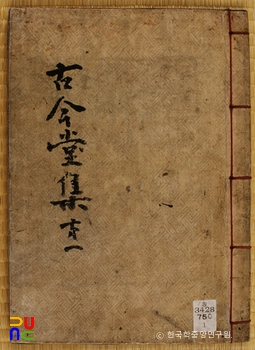 古今堂集 
3428
750
1
© 한국학중앙연구원